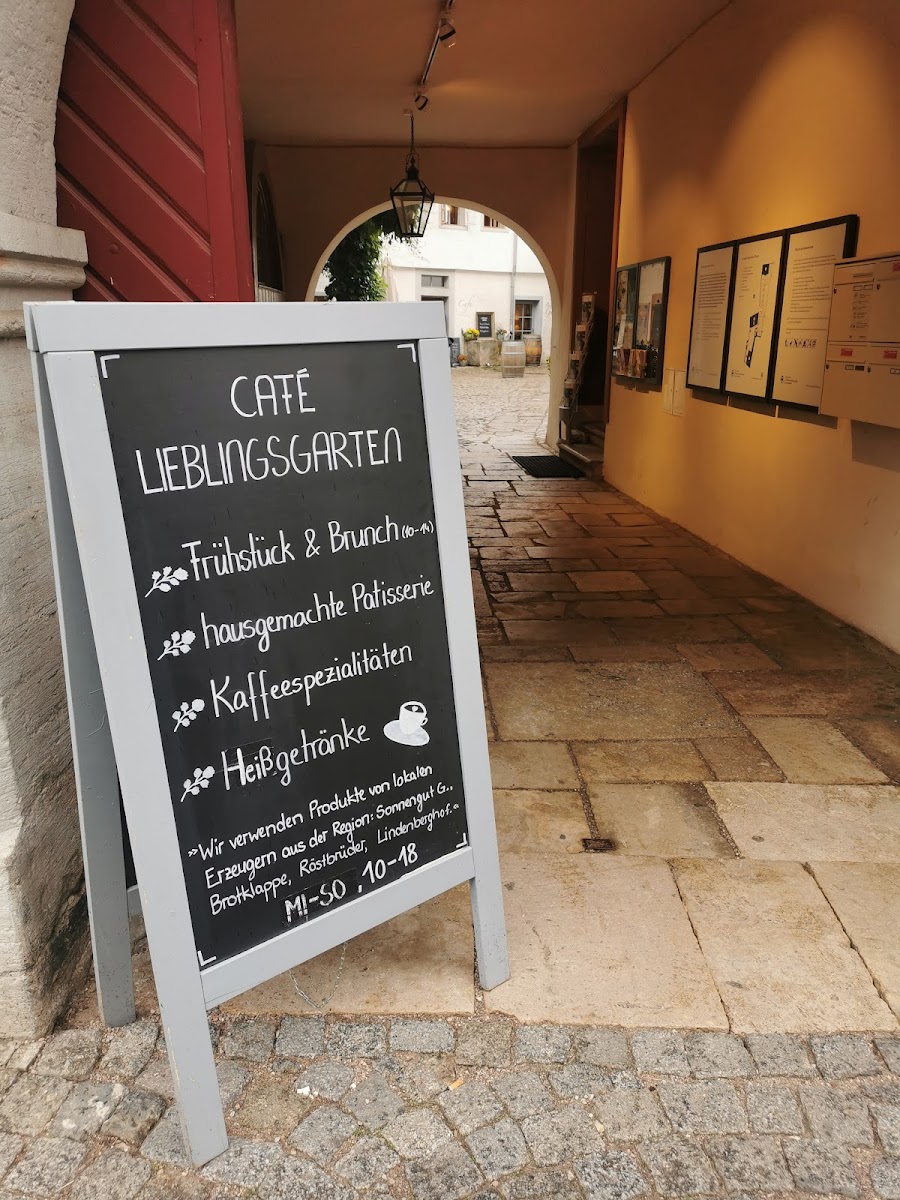 CAFÉ
LIEBLINGSGARTEN
Frühstück & Brunch (10-14)
hausgemachte Patisserie
Kaffeespezialitäten
Heißgetränke
»Wir verwenden Produkte von lokalen
Erzeugern aus der Region: Sonnengut G.,
Brotklappe, Röstbrüder, Lindenberghof.«
MI-SO, 10-18